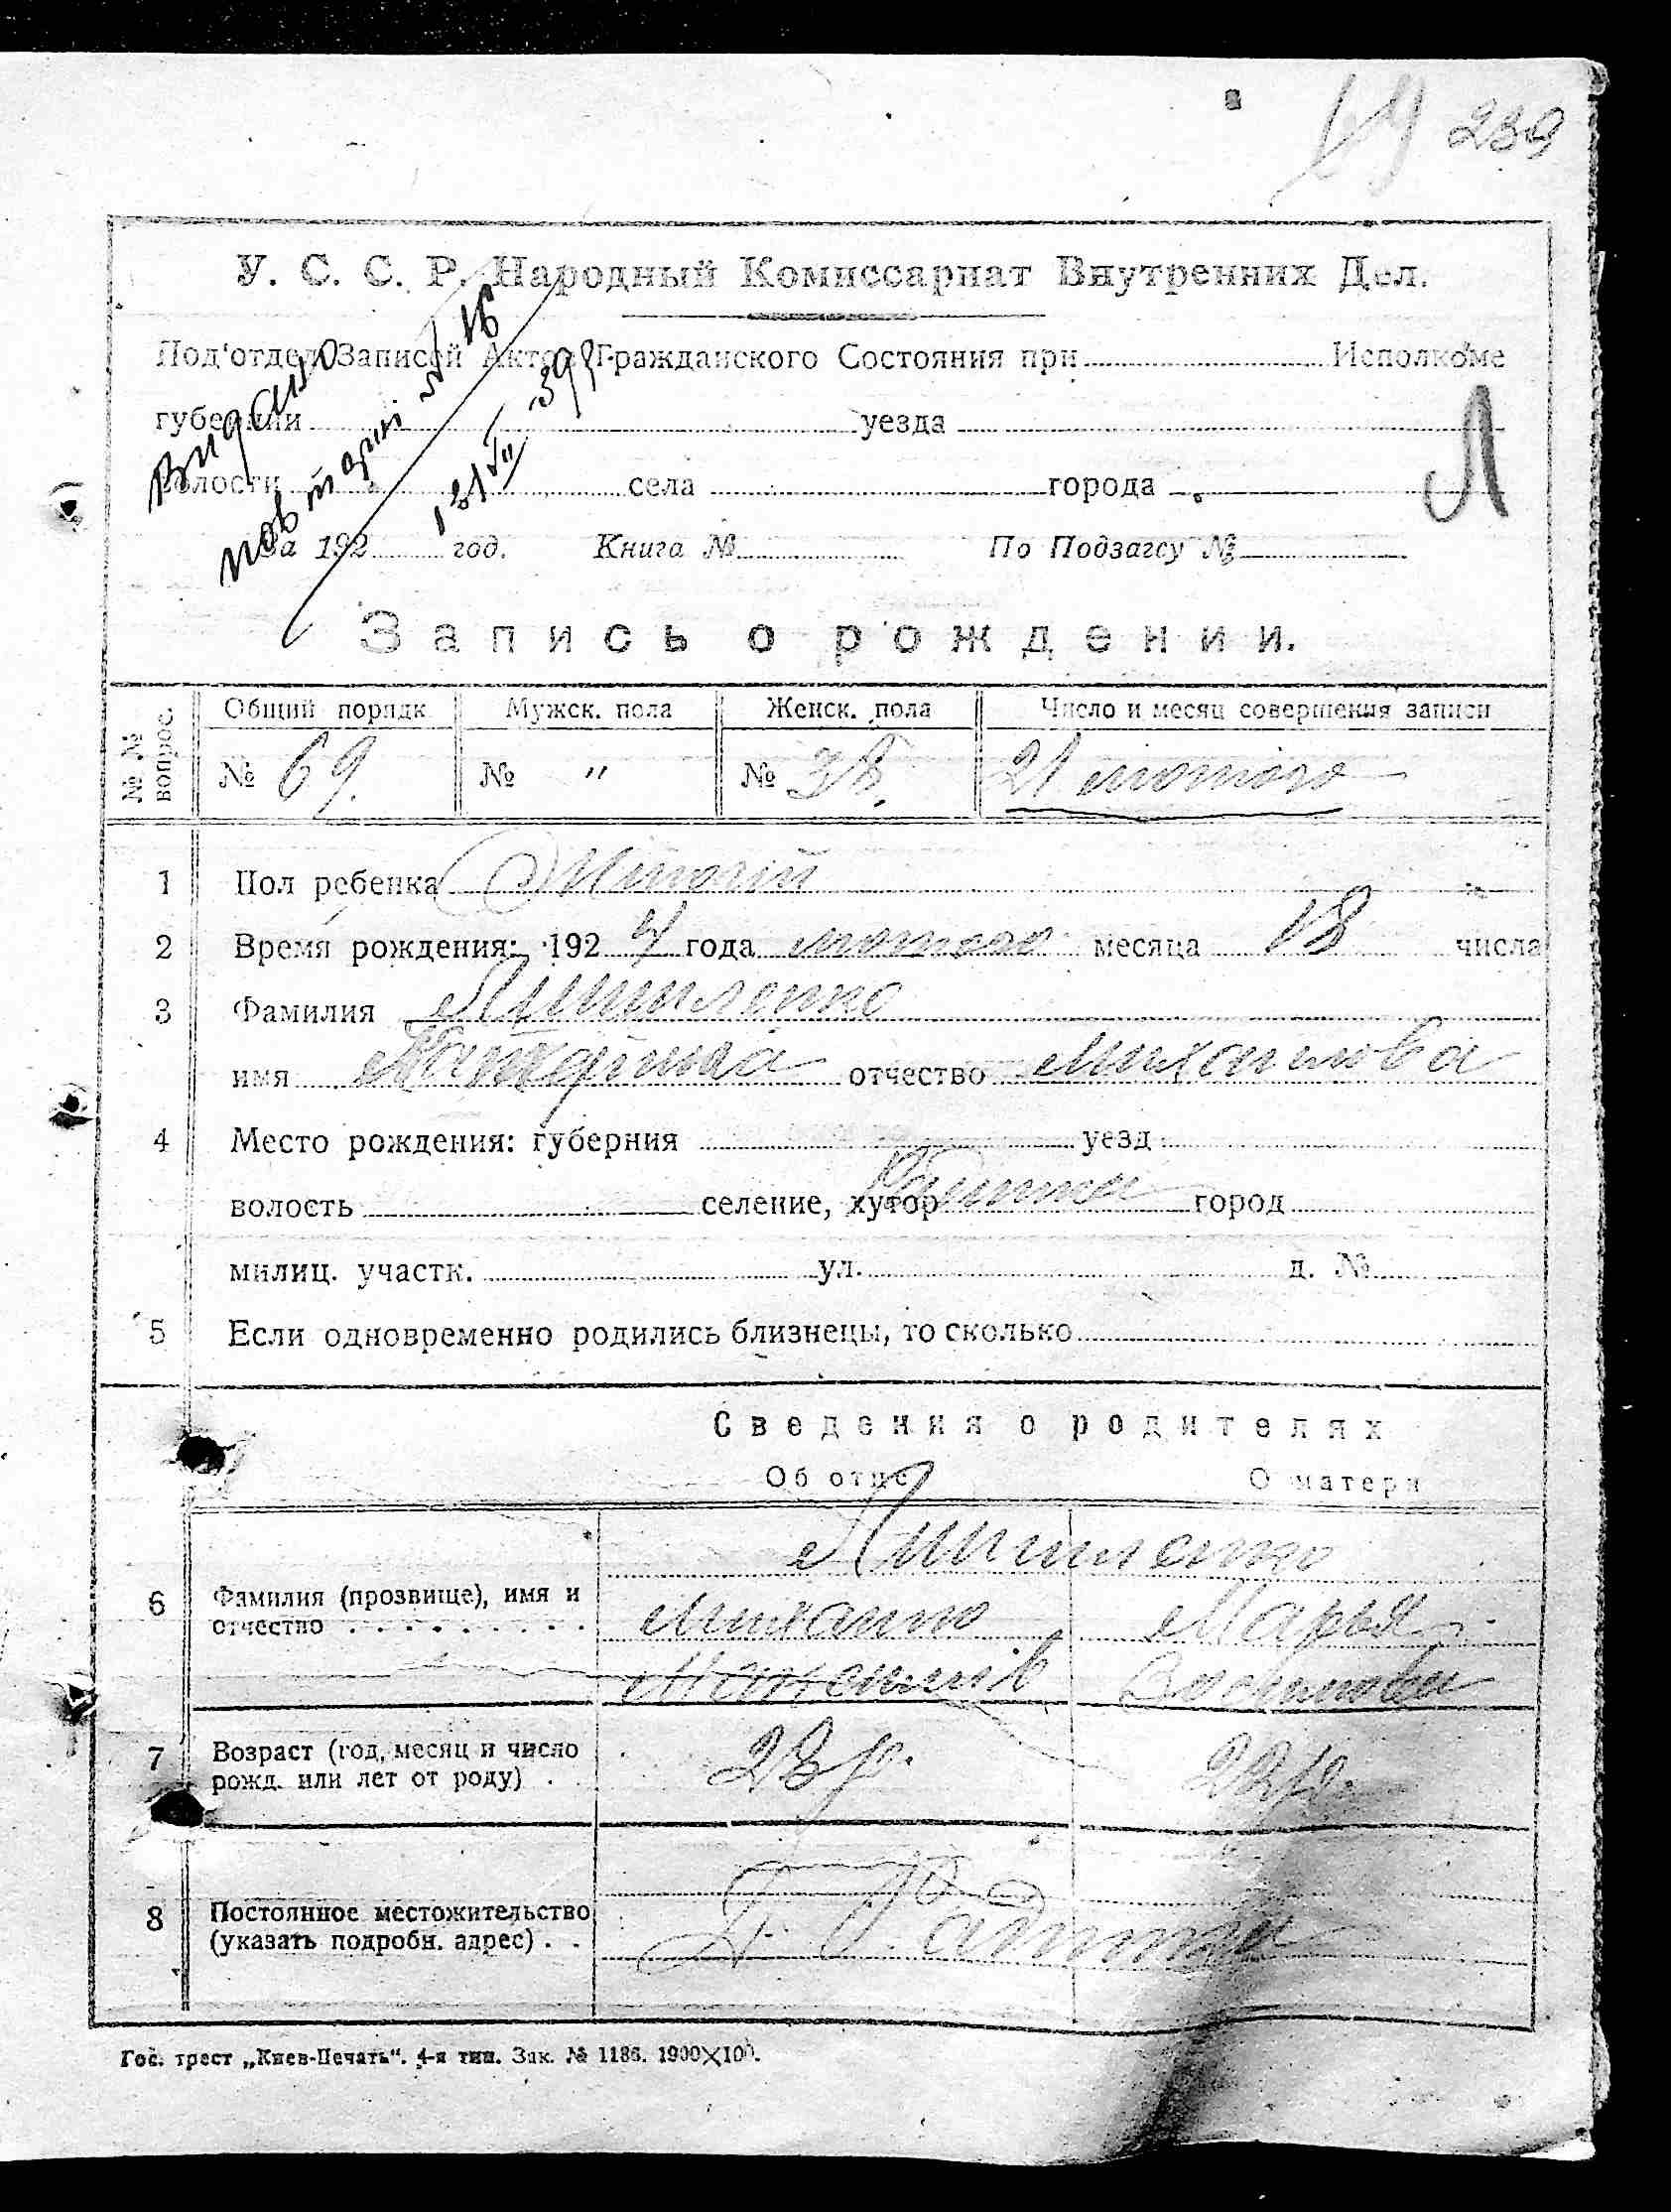 69 239
У. С. С. Р. Народный Комиссариат Внутренних Дел.
Под'отдел Записей Актов Гражданского Состояния при Исполкоме
губернии уезда
волости села города
За 192 год. Книга № По Подзагсу №
Видано
повторні № 16
Л
Запись о рождении.
№ № вопрос.
Общий порядк Мужск. пола Женск. пола Число и месяц совершения записи
№ 69. № " № 38. 21 лютого
1 Пол ребенка Жіночій
2 Время рождения: 192 4 года лютого месяца 18 числа
3 Фамилия
имя отчество Михайлова
4 Место рождения: губерния уезд
волость селение, хутор город
милиц. участк. ул. д. №
5 Если одновременно родились близнецы, то сколько
Сведения о родителях
Об отце О матери
6 Фамилия (прозвище), имя и
отчество
Михайло Марья
7 Возраст (год, месяц и число
рожд. или лет от роду) . 23 р. 22 р.
8 Постоянное местожительство
(указать подробн. адрес) . .
Гос. трест „Киев-Печать“. 4-я тип. Зак. № 1186. 1900×100.